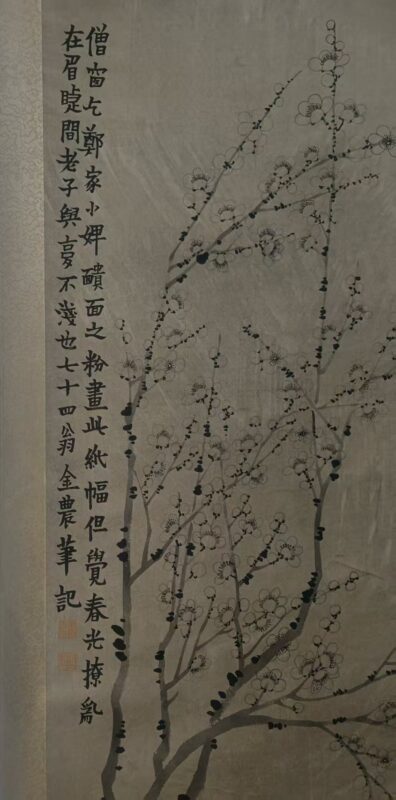 僧窗乞鄭家小婢靧面之粉畫此紙幅但覺春光撩亂
在眉睫間老子興不淺也七十四翁金農筆記